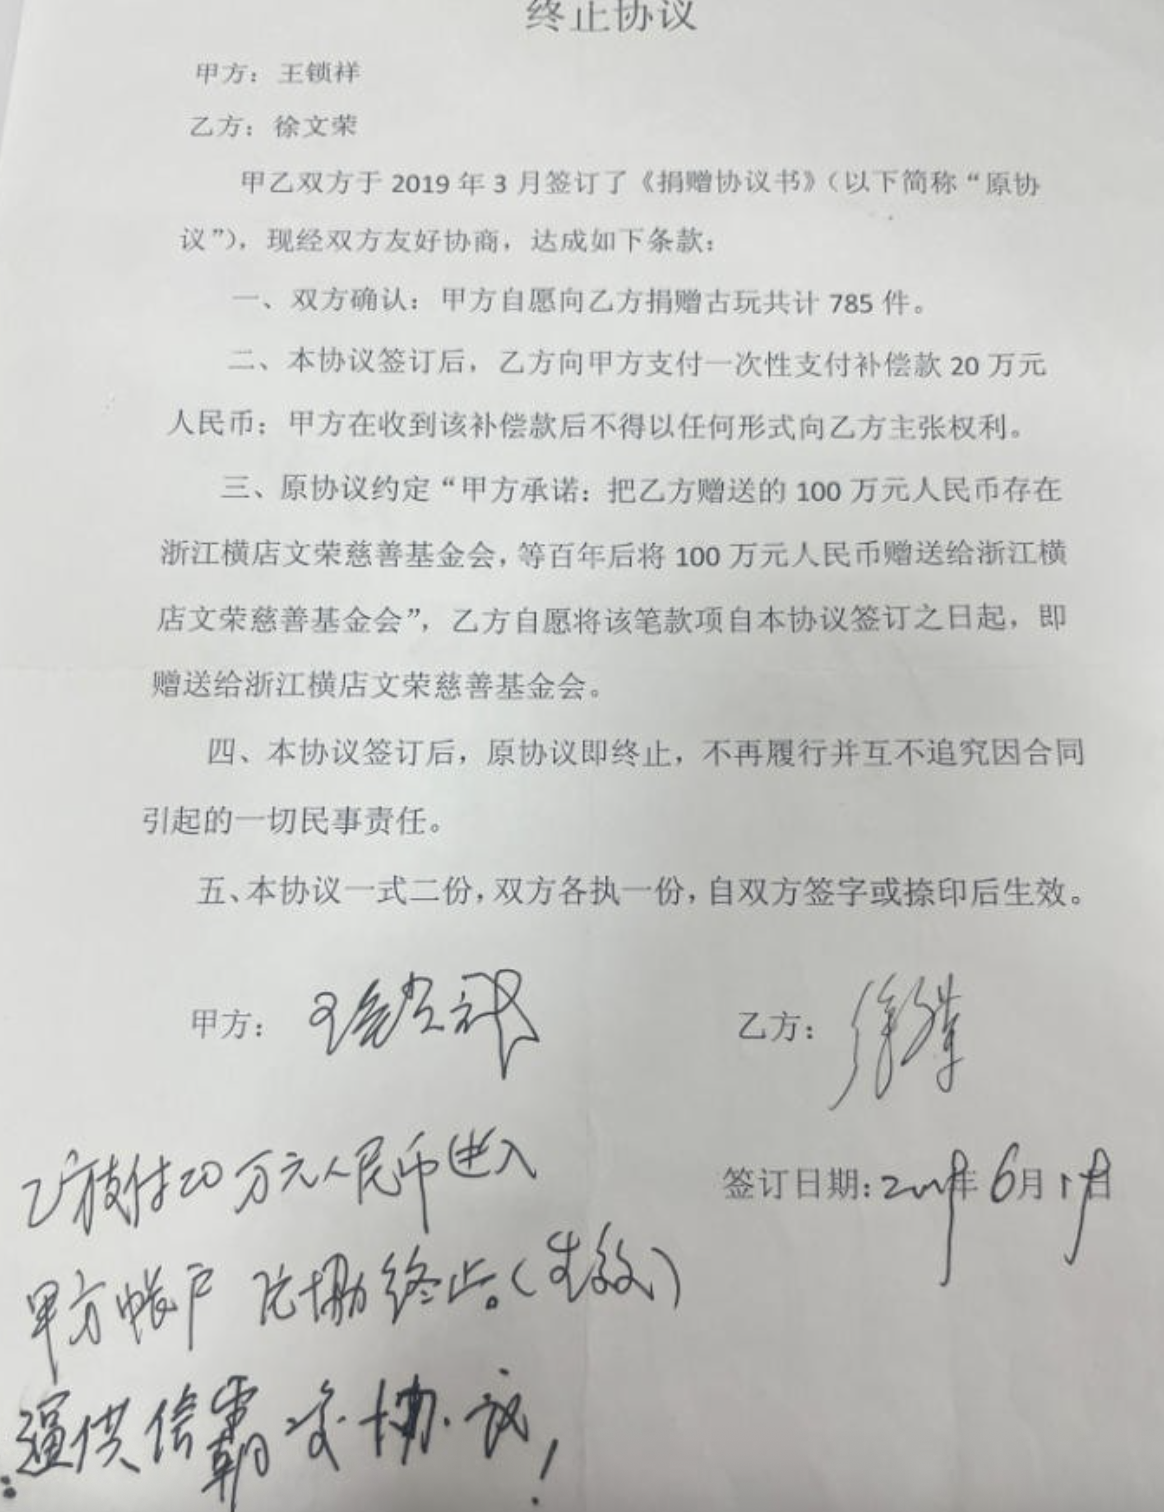 终止协议
甲方：王锁祥
乙方：徐文荣
甲乙双方于 2019 年 3 月签订了《捐赠协议书》（以下简称“原协
议”），现经双方友好协商，达成如下条款：
一、双方确认：甲方自愿向乙方捐赠古玩共计 785 件。
二、本协议签订后，乙方向甲方支付一次性支付补偿款 20 万元
人民币；甲方在收到该补偿款后不得以任何形式向乙方主张权利。
三、原协议约定“甲方承诺：把乙方赠送的 100 万元人民币存在
浙江横店文荣慈善基金会，等百年后将 100 万元人民币赠送给浙江横
店文荣慈善基金会”，乙方自愿将该笔款项自本协议签订之日起，即
赠送给浙江横店文荣慈善基金会。
四、本协议签订后，原协议即终止，不再履行并互不追究因合同
引起的一切民事责任。
五、本协议一式二份，双方各执一份，自双方签字或捺印后生效。
甲方：王锁祥 乙方：
签订日期： 年 6 月 日
乙方支付20万元人民币进入
甲方帐户 协终止。（生效）
逼供 霸 协议！